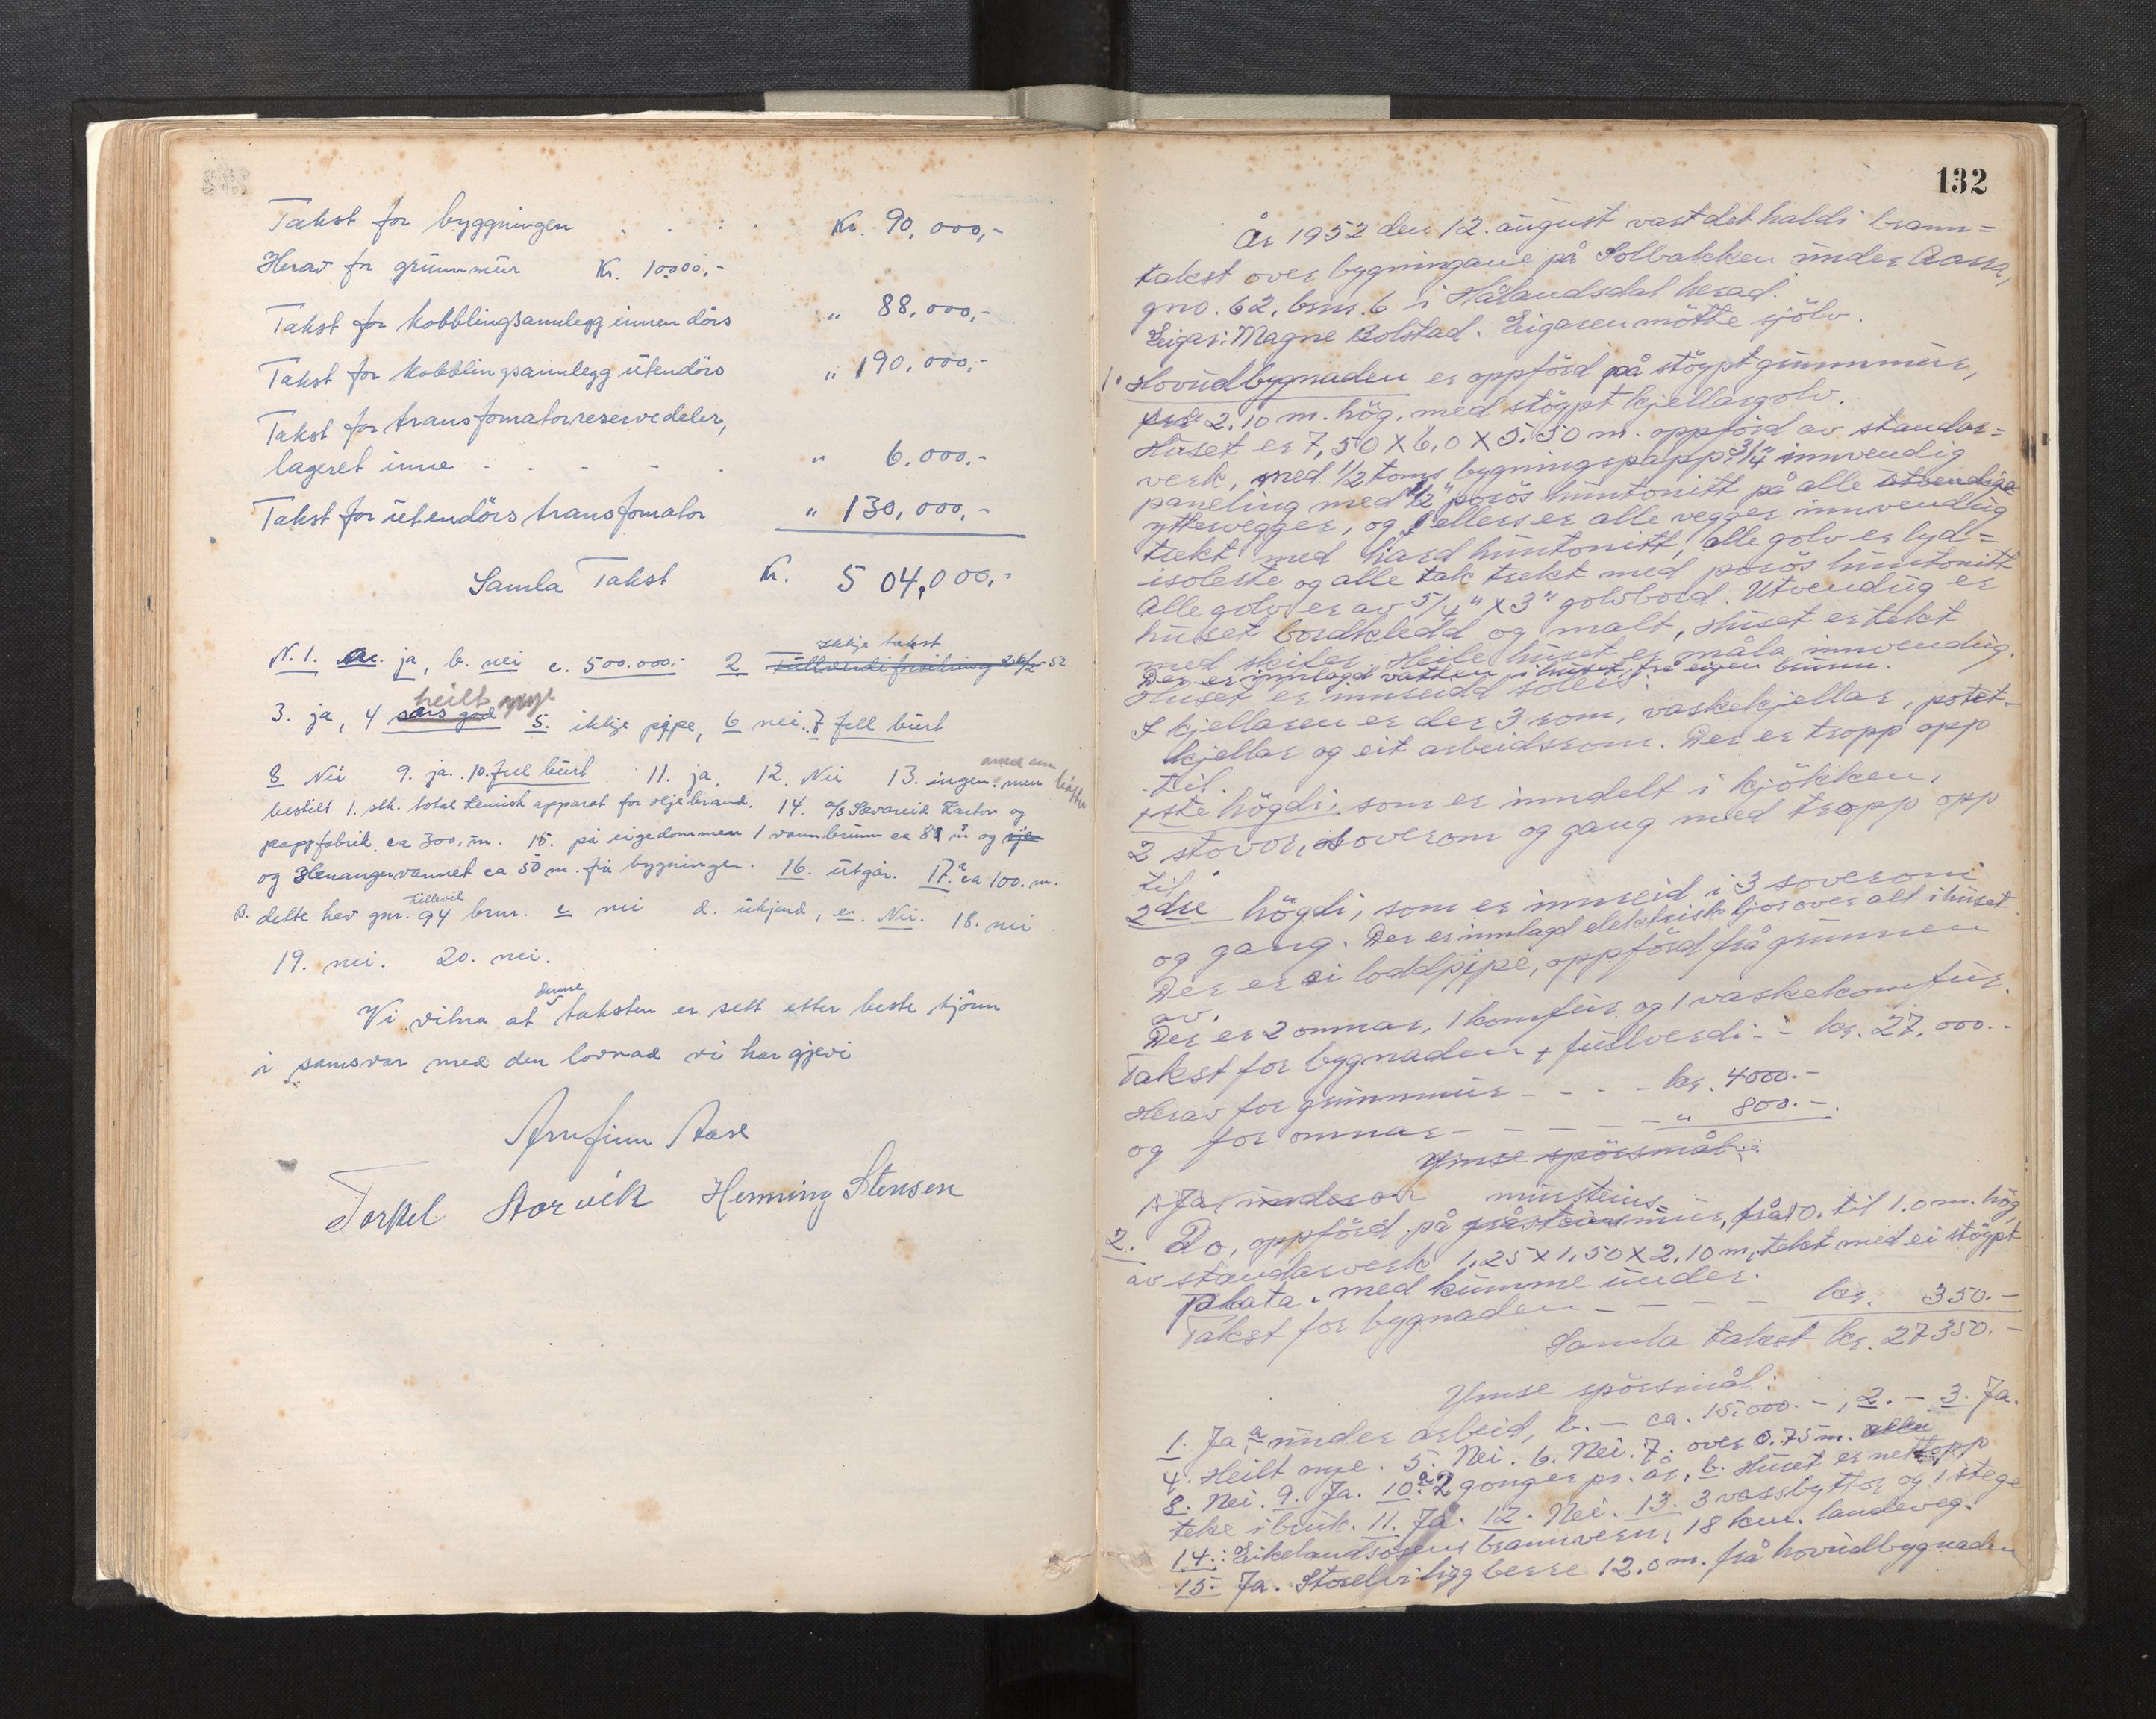 Takst for byggningen . . : . Kr. 90,000,-
Herav for grunnmur Kr. 10000,-
Takst for kobblingsannlegg innendörs " 88,000,-
Takst for kobblingsannlegg utendörs " 190,000,-
Takst for transfomatorreservedeler,
lageret inne - - - - . " 6,000.-
Takst for utendörs transfomator " 130,000,-
Samla Takst Kr. 504,000,-
Ikkje takst
N. 1. a. ja, b. nei c. 500.000.- 2 Fullverdiforsikring 26/2-52
heilt nye
3. ja, 4 sers god 5. ikkje pipe, 6 nei. 7 fell burt
8 Nei 9. ja. 10. fell burt 11. ja. 12. Nei 13. ingen. men
bestilt 1. stk. total kemisk apparat for oljebrand. 14. A/S Sævareid Karton og
pappfabrik. ca 300. m. 15. på eigedommen 1 vannbrunn ca 81 m³ og
og Henangervannet ca 50 m. frå bygningen. 16. utgår. 17.a ca 100. m.
Lillevik
B. dette hev gnr. 94 brnr. c nei d. ukjend, e. Nei. 18. nei
19. nei. 20. nei.
denne
Vi vitna at taksten er sett etter beste skjönn
i samsvar med den lovnad vi har gjevi
Arnfinn Aase
Torkel Storvik Henning Stensen
132
År 1952 den 12. august vart det haldi brann=
takst over bygningane på Solbakken under Aarra,
gno. 62, brnr. 6 i Hålandsdal herad.
Eigar: Magne Bolstad. Eigaren mötte sjölv.
1. Hovudbygnaden er oppförd på stöypt grunnmur,
2.10 m. hög. med stöypt kjellargolv.
Huset er 7,50 X 6,0 X 5.50 m. oppförd av standar=
verk, med 1/2 toms bygningspapp, 3/4" innvendig
paneling med 1/2" porös huntonitt på alle utvendige
yttervegger, og ellers er alle vegger innvendig
trekt med hard huntonitt, alle golv er lyd=
isolerte og alle tak trekt med porös huntonitt
Alle golv er av 5/4" X 3" golvbord. Utvendig er
huset bordkledd og malt, Huset er tekt
med skifer. Heile huset er måla innvendig.
Der er innlagd vatten i huset, frå eigen brunn.
Huset er innreidd soleis:
I kjellaren er der 3 rom, vaskekjellar, potet-
kjellar og eit arbeidsrom. Der er tropp opp
til.
1ste högdi, som er inndelt i kjökken,
2 stovor, soverom og gang med tropp opp
til
2dre högdi, som er innreid i 3 soverom
og gang. Der er innlagd elektrisk ljos over alt i huset.
Der er ei loddpipe, oppförd frå grunnen
av.
Der er 2 omnar, 1 komfur og 1 vaskekomfur.
Takst for bygnaden + fullverdi: - kr. 27.000.-
Herav for grunnmur - - - - kr. 4000.-
og for omnar - - - - - - " 800.-
Ymse spörsmål:
1. Ja, under minsteins=
2. Do, oppförd på gråsteinsmur, frå 0. til 1.0 m. hög,
av standarverk 1,25 X 1,50 X 2,10 m, tekt med ei stöypt
plata, med kumme under.
Takst for bygnaden - - - - - kr. 350.-
Samla takst kr. 27350.-
Ymse spörsmål:
1. Ja, a under arbeid, b. - ca. 15.000.-, 2. - 3. Ja.
4. Heilt nye. 5. Nei. 6. Nei. 7. over 0.75 m.
8. Nei. 9. Ja. 10. a. 2 gonger pr. år, b. Huset er nettopp
teke i bruk. 11. Ja. 12. Nei. 13. 3 vassbyttor og 1 stege
14.: Eikelandsosens brannvern, 18 km. landeveg.
15. Ja. Storelvi ligg berre 12.0 m. frå hovudbygnaden